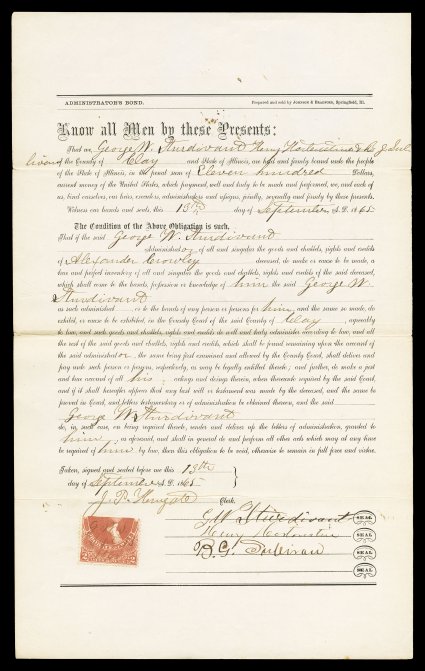 ADMINISTRATOR'S BOND. Prepared and sold by JOHNSON & BRADFORD, Springfield, Ill.
Know all Men by these Presents:
That we, George W. Sturdivant Henry & B. G. Sul
livan of the County of Clay and State of Illinois, are held and firmly bound unto the people
of the State of Illinois, in the penal sum of Eleven hundred Dollars,
current money of the United States, which payment, well and truly to be made and performed, we, and each of
us, bind ourselves, our heirs, executors, administrators and assigns, jointly, severally and firmly by these presents.
Witness our hands and seals, this 13th day of September A. D. 1865
The Condition of the Above Obligation is such,
That if the said George W. Sturdivant
Administrator of all and singular the goods and chattels, rights and credits
of Alexander Crowley deceased, do make or cause to be made, a
true and perfect inventory of all and singular the goods and chattels, rights and credits of the said deceased,
which shall come to the hands, possession or knowledge of him the said George W.
Sturdivant
as such administrator or to the hands of any person or persons for him, and the same so made, do
exhibit, or cause to be exhibited in the County Court of the said County of Clay, agreeably
to law, and such goods and chattels, rights and credits do well and truly administer according to law, and all
the rest of the said goods and chattels, rights and credits, which shall be found remaining upon the account of
the said administrator, the same being first examined and allowed by the County Court, shall deliver and
pay unto such person or persons, respectively, as may be legally entitled thereto; and further, do make a just
and true account of all his actings and doings therein, when thereunto required by the said Court,
and if it shall hereafter appear that any last will or testament was made by the deceased, and the same be
proved in Court, and letters testamentary or of administration be obtained thereon, and the said
George W. Sturdivant
do, in such case, on being required thereto, render and deliver up the letters of administration, granted to
him, as aforesaid, and shall in general do and perform all other acts which may at any time
be required of him by law, then this obligation to be void, otherwise to remain in full force and virtue.
Taken, signed and sealed before me this 13th
day of September A. D. 1865
J. P. Clerk.
G. W. Sturdivant SEAL
Henry SEAL
B. G. Sullivan SEAL
SEAL
SEAL